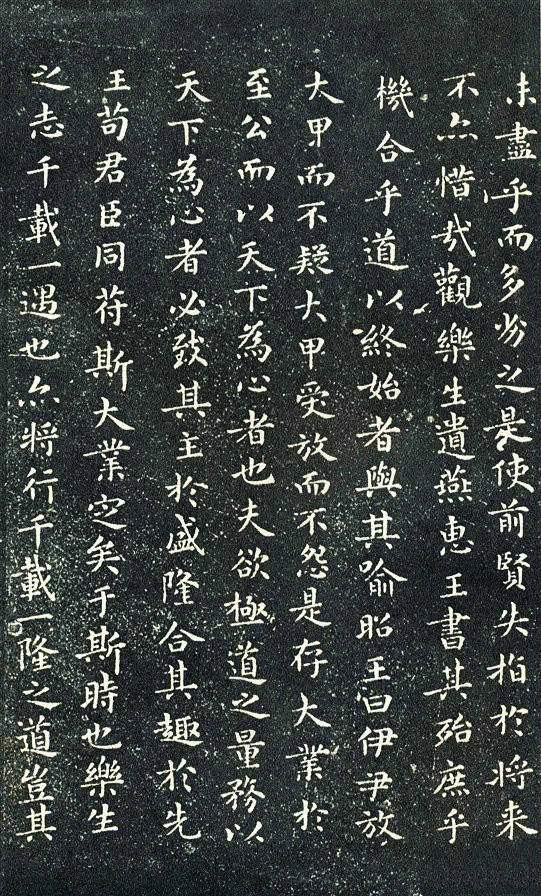 未盡乎而多劣之是使前賢失指於將来
不亦惜哉觀樂生遺燕惠王書其殆庶乎
機合乎道以終始者與其喻昭王曰伊尹放
大甲而不疑大甲受放而不怨是存大業於
至公而以天下為心者也夫欲極道之量務以
天下為心者必致其主於盛隆合其趣於先
王苟君臣同苻斯大業定矣于斯時也樂生
之志千載一遇也亦將行千載一隆之道豈其